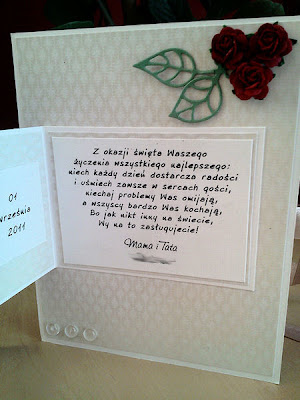 01
września
2011
Z okazji święta Waszego
życzenia wszystkiego najlepszego:
niech każdy dzień dostarcza radości
i uśmiech zawsze w sercach gości,
niechaj problemy Was omijają,
a wszyscy bardzo Was kochają,
Bo jak nikt inny na świecie,
Wy na to zasługujecie!
Mama i Tata